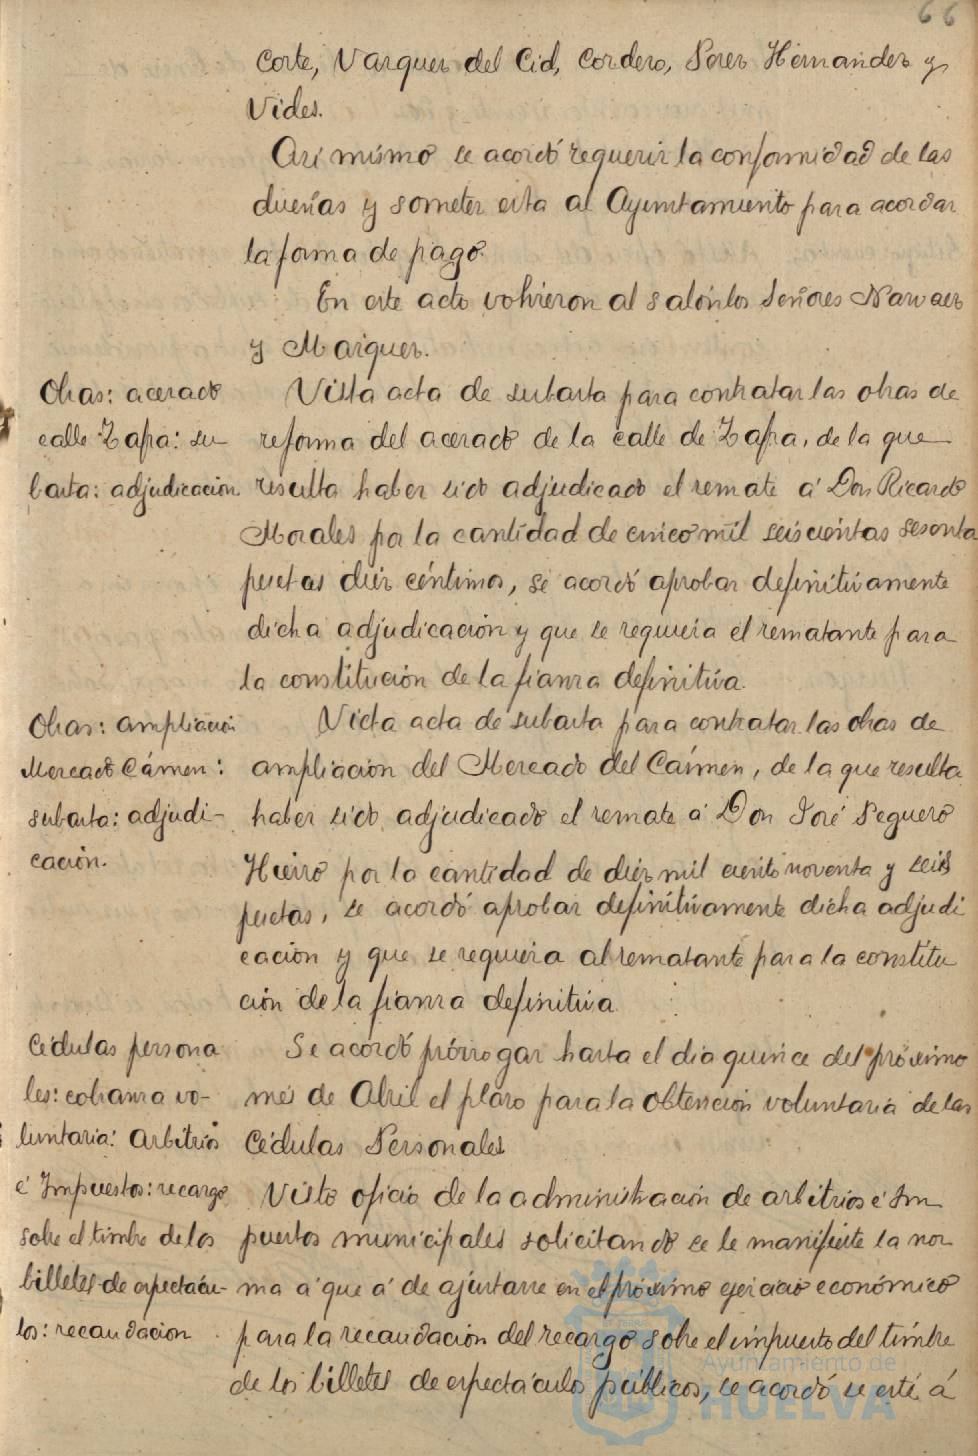 66
Corte, Vazquez del Cid, Cordero, Perez Hernandez y
Vides.
Asi mismo se acordó requerir la conformidad de las
dueñas y someter esta al Ayuntamiento para acordar
la forma de pago.
En este acto volvieron al salón los Señores Narvaez
y Marquez.
Obras: acerado
calle Zafra: su
basta: adjudicación
Vista acta de subasta para contratar las obras de
reforma del acerado de la calle de Zafra, de la que
resulta haber sido adjudicado el remate á Don Ricardo
Morales por la cantidad de cinco mil seiscientas sesenta
pesetas diez céntimos, se acordó aprobar definitivamente
dicha adjudicación y que se requiera el rematante para
la constitución de la fianza definitiva.
Obras: ampliación
Mercado Cármen:
subasta: adjudi-
cación.
Vista acta de subasta para contratar las obras de
ampliación del Mercado del Cármen, de la que resulta
haber sido adjudicado el remate á Don José Peguero
Hierro por la cantidad de diez mil ciento noventa y seis
pesetas, se acordó aprobar definitivamente dicha adjudi
cación y que se requiera al rematante para la constitu
ción de la fianza definitiva.
Cédulas persona
les: cobranza vo-
luntaria:
Se acordó prórrogar hasta el dia quince del próximo
més de Abril el plazo para la obtención voluntaria de las
Cédulas Personales
Arbitrios
é Impuestos: recargo
sobre el timbre de los
billetes de espectácu-
los: recaudación
Visto oficio de la administración de arbitrios é Im
puestos municipales solicitando se le manifieste la nor
ma á que á de ajustarse en el próximo ejercicio económico
para la recaudación del recargo sobre el impuesto del timbre
de los billetes de espectáculos públicos, se acordó se esté á
Ayuntamiento de
HUELVA